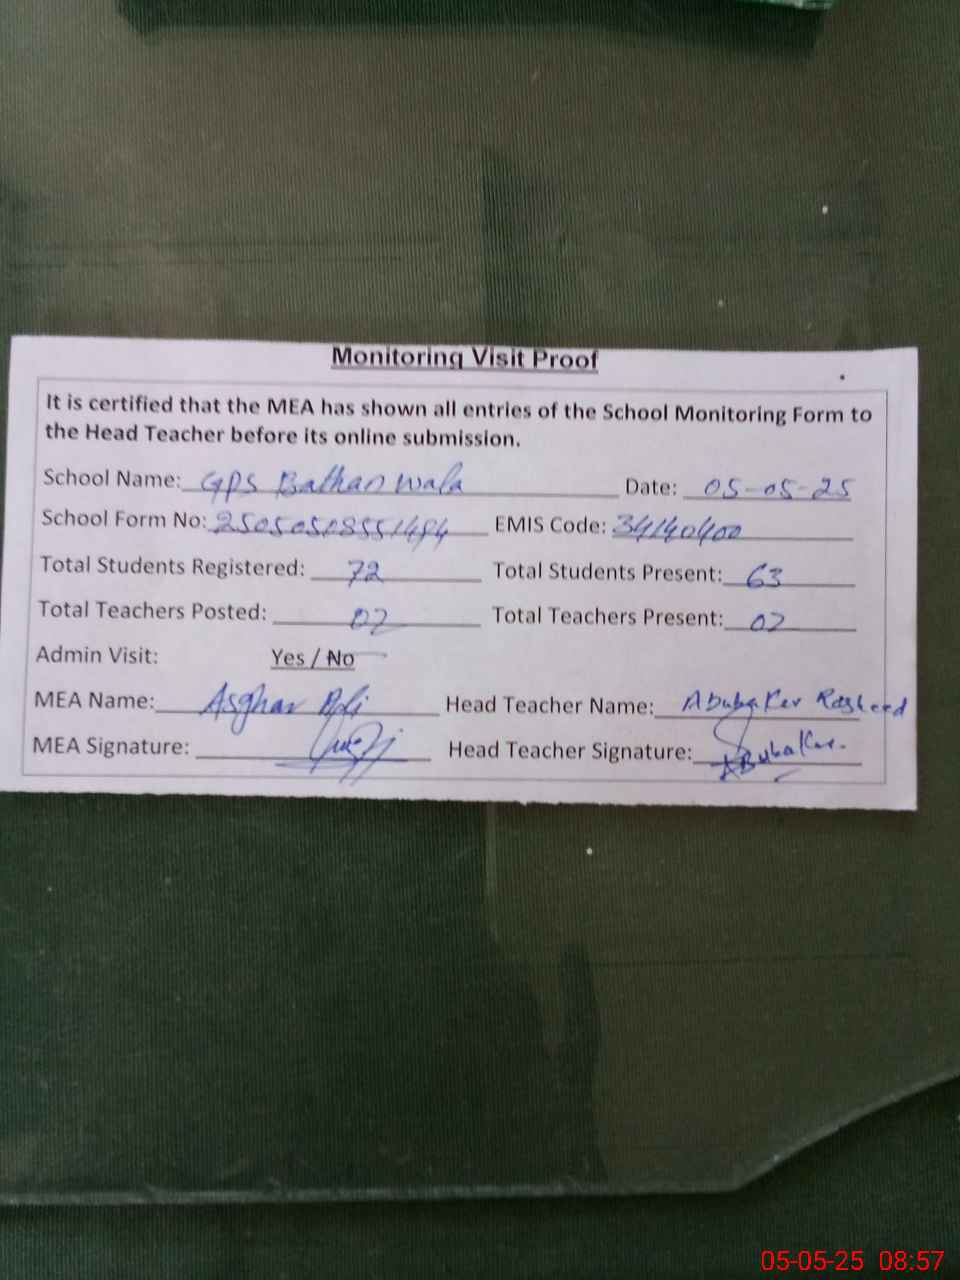 Monitoring Visit Proof
It is certified that the MEA has shown all entries of the School Monitoring Form to
the Head Teacher before its online submission.
School Name: GPS Balhanwala Date: 05-05-25
School Form No: 25050508551484 EMIS Code: 34140400
Total Students Registered: 72 Total Students Present: 63
Total Teachers Posted: 02 Total Teachers Present: 02
Admin Visit: Yes / No
MEA Name: Asghar Ali Head Teacher Name: Abubaker Rasheed
MEA Signature: Head Teacher Signature: Abubaker.
05-05-25 08:57